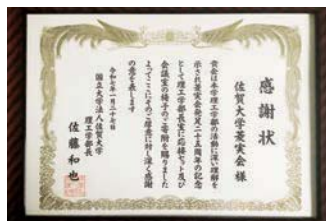 感謝状
佐賀大学菱実会様
貴会は本学理工学部の活動に深い理解を
示され菱実会発足二十五周年の記念
として理工学部長室に応接セット及び
会議室の椅子のご寄附を賜りました
よってここにそのご厚意に対し深く感謝
の意を表します
令和七年一月二十七日
国立大学法人佐賀大学
理工学部長
佐藤和也